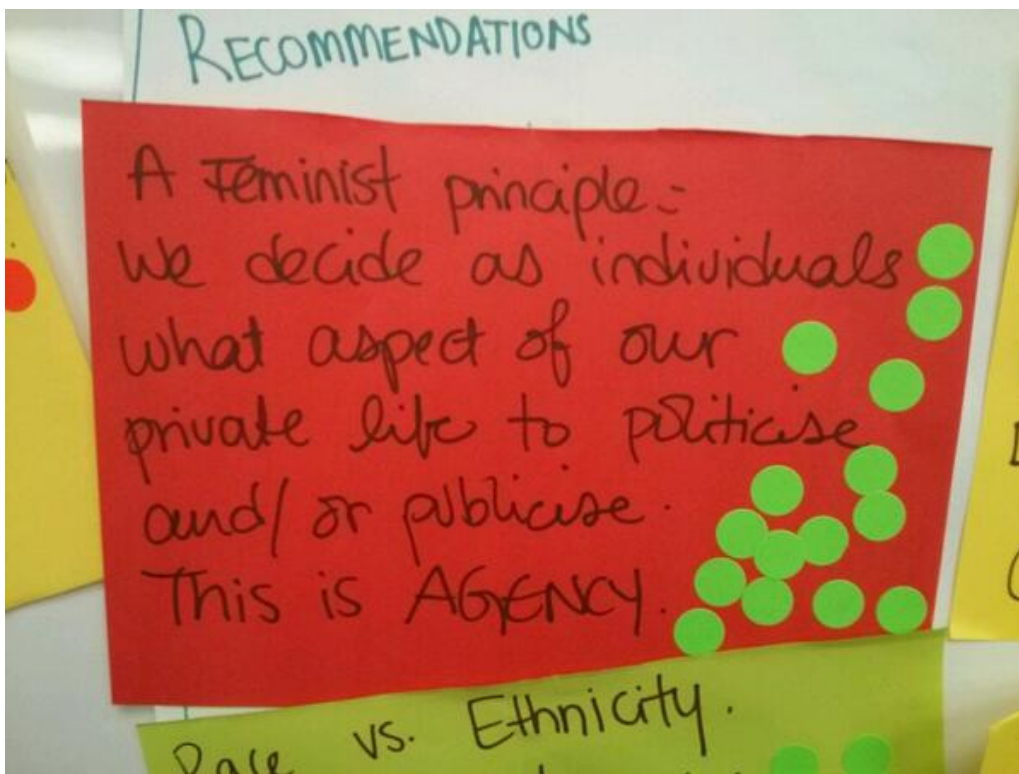 RECOMMENDATIONS
A Feminist principle:
We decide as individuals
what aspect of our
private life to politicise
and/or publicise.
This is AGENCY.
Race vs. Ethnicity.